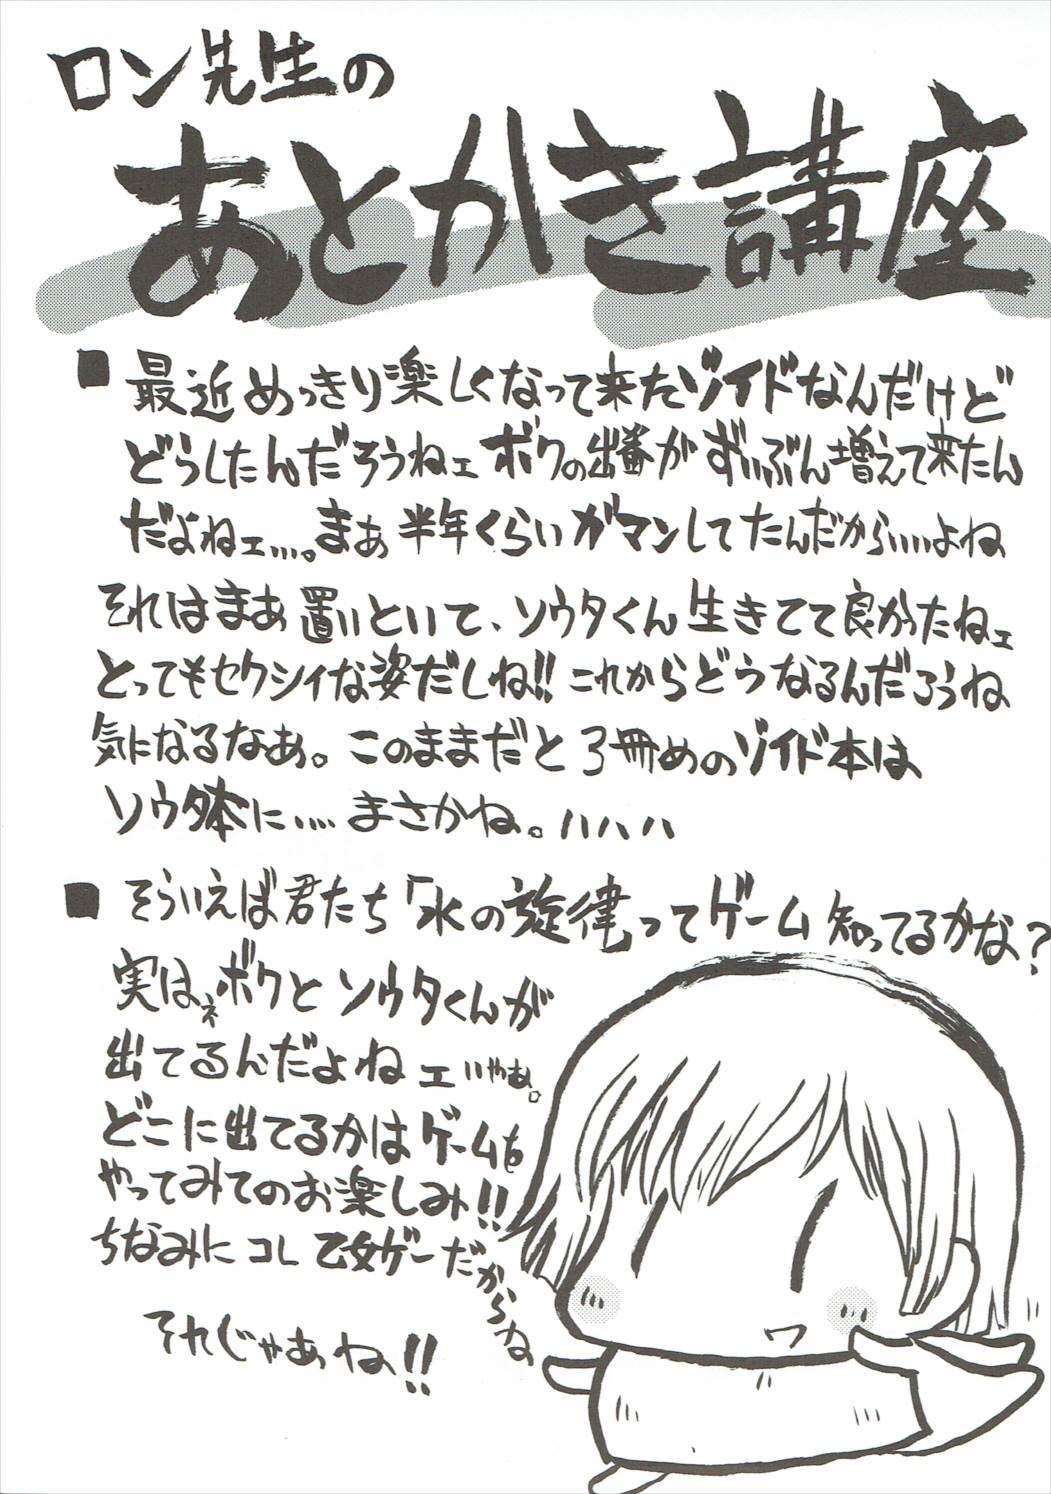 ロン先生の
あとかき講座
■ 最近めっきり楽しくなって来たゾイドなんだけど
どうしたんだろうねェ ボクの出番がずいぶん増えて来たん
だよねェ…。まぁ半年くらいガマンしてたんだから……よね
それはまあ置いといて、ソウタくん生きてて良かったねェ
とってもセクシィな姿だしね!! これからどうなるんだろうね
気になるなあ。このままだと3冊めのゾイド本は
ソウタ本に…‥ まさかね。ハハハ
■ そういえば君たち「水の旋律ってゲーム知ってるかな?
実はネボクとソウタくんが
出てるんだよねェいやぁ。
どこに出てるかはゲームを
やってみてのお楽しみ!!
ちなみにコレ乙女ゲーだからね
それじゃあね!!